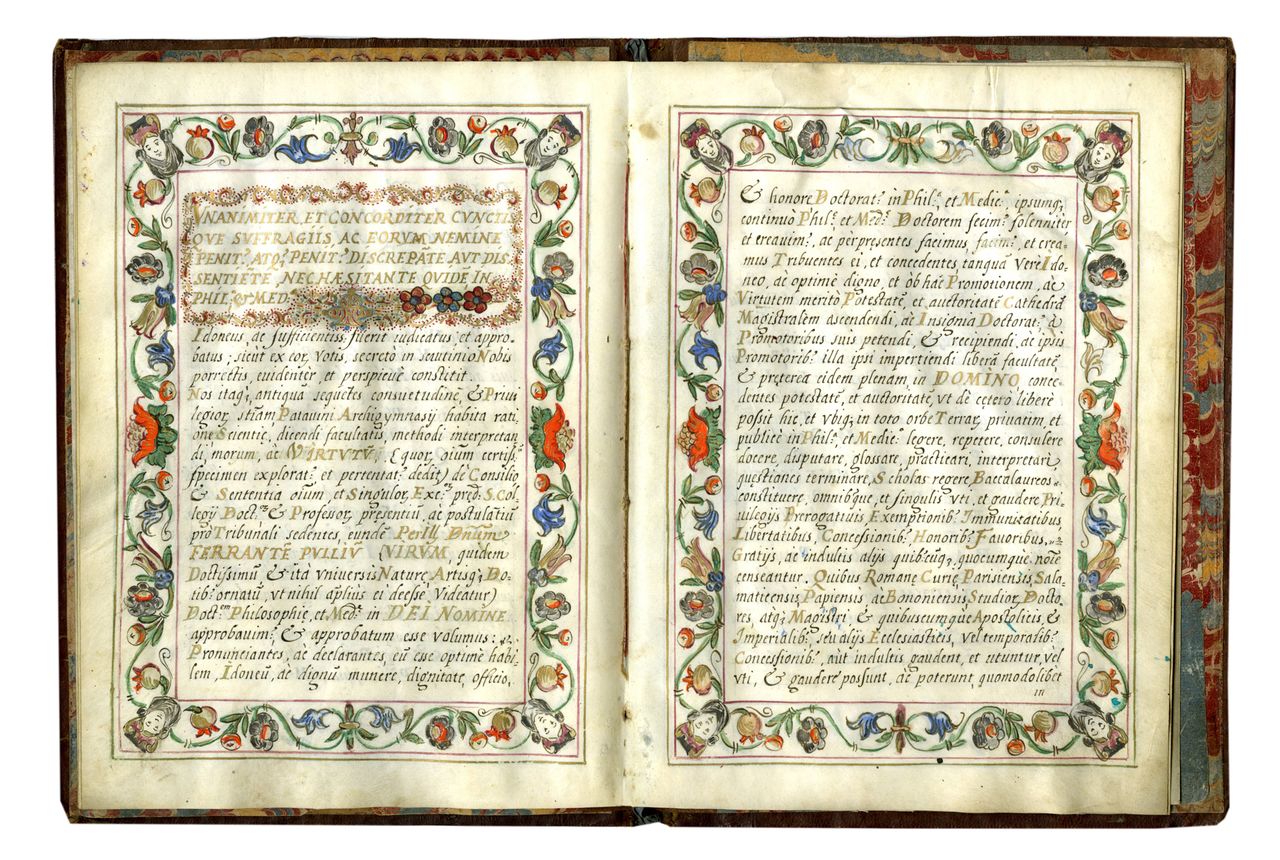 VNANIMITER, ET CONCORDITER CVNCTIS
QVE SVFFRAGIIS, AC EORVM NEMINE
PENIT.' ATQ; PENIT.' DISCREPĀTE AVT DIS,
SENTIĒTE, NEC HÆSITANTE QVIDĒ IN
PHIL.' & MED.
Idoneus, ac sufficientiss.' fuerit iudicatus, et appro-
batus; sicut ex eor. Votis, secreto in scutinio Nobis
porrectis, euidenter, et perspicue constitit.
Nos itaq; antiqua sequētes consuetudinē, & Priui
legior, Patauini Archigymnasij habita rati
one Scientie, dicendi facultatis, methodi interpretan
di, morum, ac VIRTVTŪ, (quor oium certiss.'
specimen explorat.' et dedit) de Consilio
& Sententia oium, et Singulor, Exc. pred. S. Col
legij Doct. & Professor, presentiū, ac postulatiū
pro Tribunali sedentes, eundē Perill. Dnūm
FERRANTĒ PVLLIV̄ (VIRVM quidem
Doctissimū, & ità vniversis Nature, Artisq; Do-
tib.' ornatū, vt nihil apliùs ei deesse Videatur)
Doct.em Philosophie, et Med. in DEI NOMINE
approbauim.' & approbatum esse volumus:
Pronunciantes, ac declarantes, eū esse optimè habi
lem, Idoneū, ac dignū munere, dignitate, officio,
& honore Doctorat.' in Phil. et Medic. ipsumq;
continuò Phil. et Med. Doctorem fecim.' solenniter
et creauim.' ac pèr presentes facimus facim.' et crea-
mus Tribuentes ei, et concedentes tanquā verè Ido-
neo, ac optimè digno, et ob hāc Promotionem, ac
Virtutem meritò Potestatē, et auctoritatē Cathedrā
Magistralem ascendendi, ac Insignia Doctorat.' à
Promotoribus suis petendi, & recipiendi, ac ipsis
Promotorib.' illa ipsi impertiendi liberā facultatē
& preterea eidem plenam, in DOMINO, conce-
dentes potestatē, et auctoritatē, vt de ceterò liberè
possit hic, et vbiq; in toto orbe Terrar. priuatim, et
publicè in Phil. et Medic. legere, repetere, consulere
docere, disputare, glossare, practicari, interpretari
questiones terminare, Scholas regere, Baccalaureos
constituere, omnibq; et singulis vti, et gaudere Pri
uilegijs Prerogatiuis, Exemptionib.' Immunitatibus
Libertatibus, Concessionib.' Honorib.' Fauoribus,
Gratijs, ac indultis alijs quibcūq; quocumque noīe
censeantur. Quibus Romane Curie, Parisiensis, Sala-
manticensis, Papiensis, ac Bononiensis, Studior. Docto
res, atq; Magistri, & quibuscumque Apostolicis, &
Imperialib.' seu alijs Ecclesiasticis, vel temporalib.'
Concessionib.' aut indultis gaudent, et vtuntur, vel
vti, & gaudere possunt, ac poterunt, quomodolibet
in